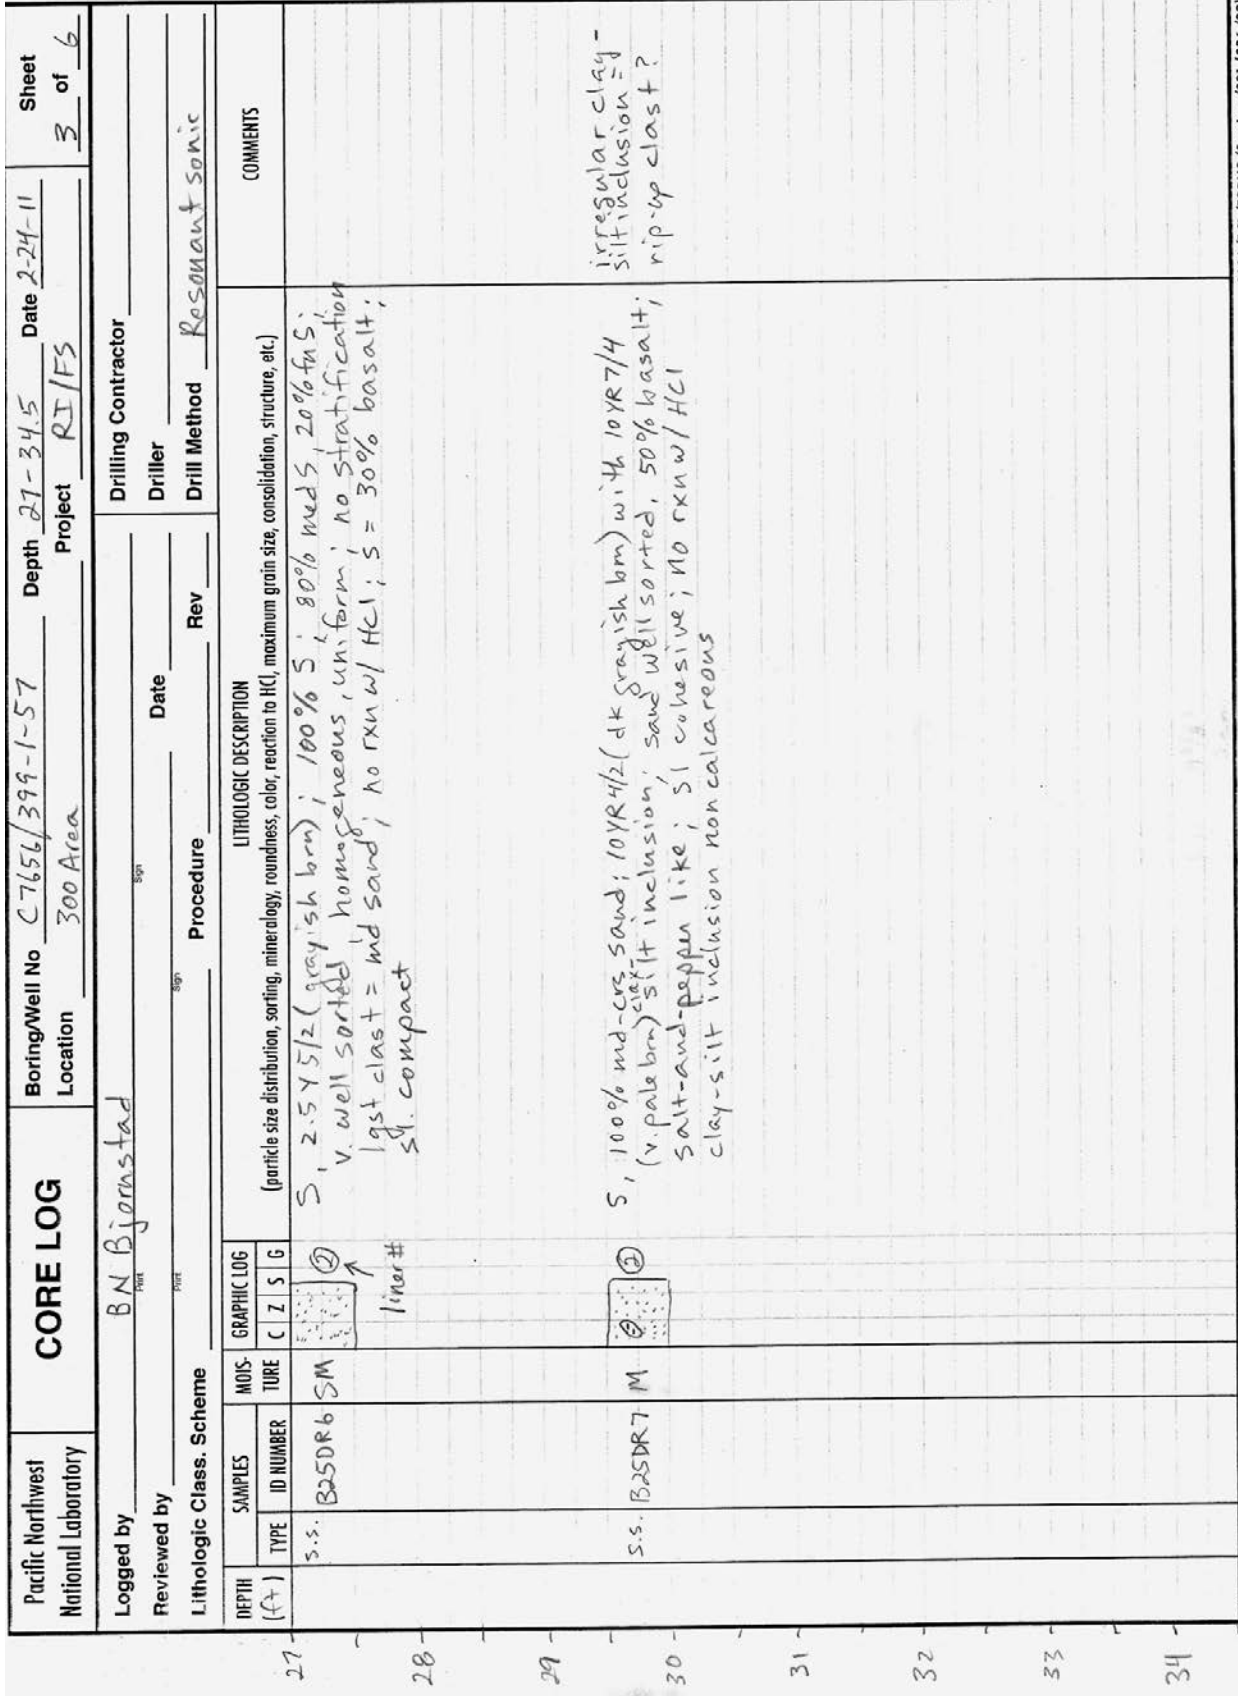 Pacific Northwest
National Laboratory
CORE LOG
Boring/Well No C7656/399-1-57 Depth 27-34.5 Date 2-24-11
Location 300 Area Project RI/FS
Sheet
3 of 6
Logged by BN Bjornstad
Print
Sign
Drilling Contractor
Reviewed by
Print
Sign
Date
Driller
Lithologic Class. Scheme Procedure Rev
Drill Method Resonant sonic
DEPTH
(ft)
SAMPLES
TYPE ID NUMBER
MOIS-
TURE
GRAPHIC LOG
C Z S G
LITHOLOGIC DESCRIPTION
(particle size distribution, sorting, mineralogy, roundness, color, reaction to HCl, maximum grain size, consolidation, structure, etc.)
COMMENTS
27
s.s. B25DR6 SM
2
liner #
S, 2.5Y5/2 (grayish brn); 100% S; 80% med S, 20% fn S;
v. well sorted homogeneous, uniform; no stratification
lgst clast = m'd sand; no rxn w/ HCl; S = 30% basalt;
sl. compact
28
29
s.s. B25DR7 M
2
S, 100% md-crs sand; 10YR4/2 (dk grayish brn) with 10YR7/4
(v. pale brn) clay-silt inclusion; sand well sorted, 50% basalt;
salt-and-pepper like; sl cohesive; no rxn w/ HCl
clay-silt inclusion noncalcareous
irregular clay-
silt inclusion =
rip-up clast?
30
31
32
33
34